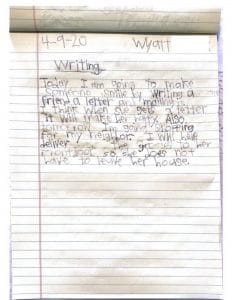 4-9-20 Wyatt
Writing
Today I am going to make
someone smile by writing a
friend a letter and mailing
it that when gets a letter
it will make her happy. Also,
I am going shopping
for my neighbor. I will have
deliver the to her
so she does not
have to leave her house.